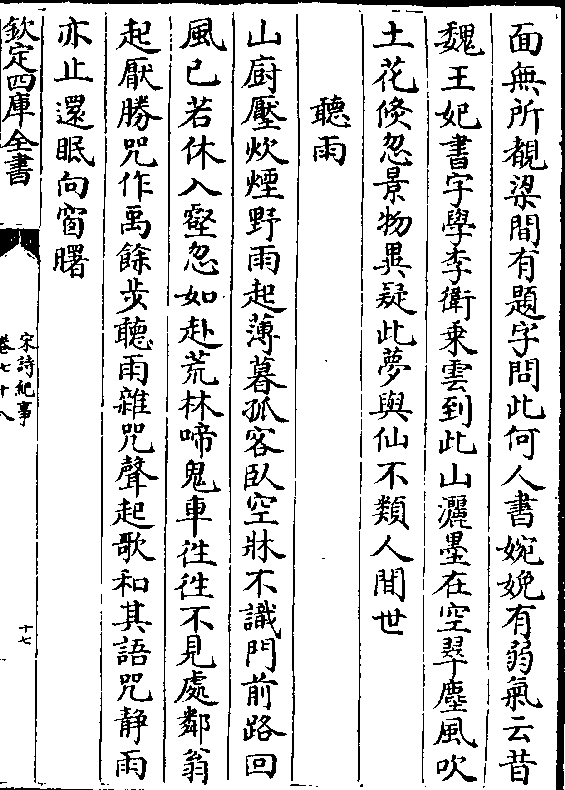 面無所覩梁間有題字問此何人書婉娩有弱氣云昔
魏王妃書字學李衛乗雲到此山灑墨在空翠塵風吹
土花倐忽景物異疑此夢與仙不類人間世
聽雨
山厨壓炊煙野雨起薄暮孤客臥空牀不識門前路回
風已若休入壑忽如赴荒林啼鬼車徃徃不見處鄰翁
起厭勝咒作禹餘步聽雨雜咒聲起歌和其語咒静雨
亦止還眠向窗曙
欽定四庫全書
宋詩紀事
卷七十八
十七